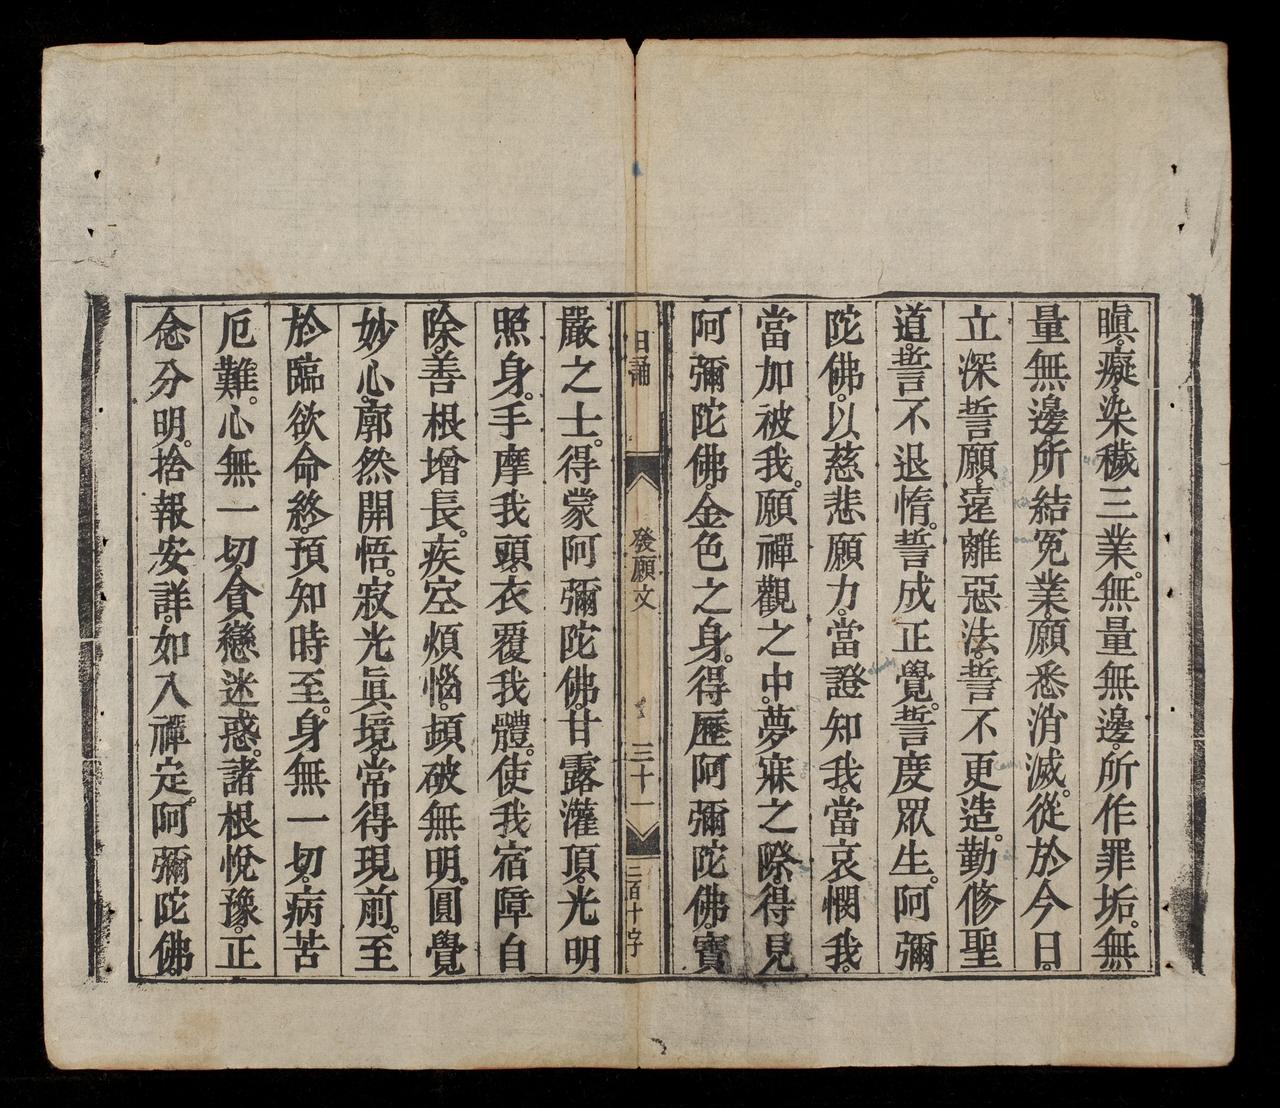 瞋癡。染穢三業。無量無邊。所作罪垢。無
量無邊。所結冤業。願悉消滅。從於今日。
立深誓願。遠離惡法。誓不更造。勤修聖
道。誓不退惰。誓成正覺。誓度眾生。阿彌
陀佛。以慈悲願力。當證知我。當哀憫我。
當加被我。願禪觀之中。夢寐之際。得見
阿彌陀佛。金色之身。得歷阿彌陀佛。寶
日誦
發願文
三十一
三百十字
嚴之士。得蒙阿彌陀佛。甘露灌頂。光明
照身。手摩我頭。衣覆我體。使我宿障自
除。善根增長。疾空煩惱。頓破無明。圓覺
妙心。廓然開悟。寂光眞境。常得現前。至
於臨欲命終。預知時至。身無一切。病苦
厄難。心無一切。貪戀迷惑。諸根悅豫。正
念分明。捨報安詳。如入禪定。阿彌陀佛